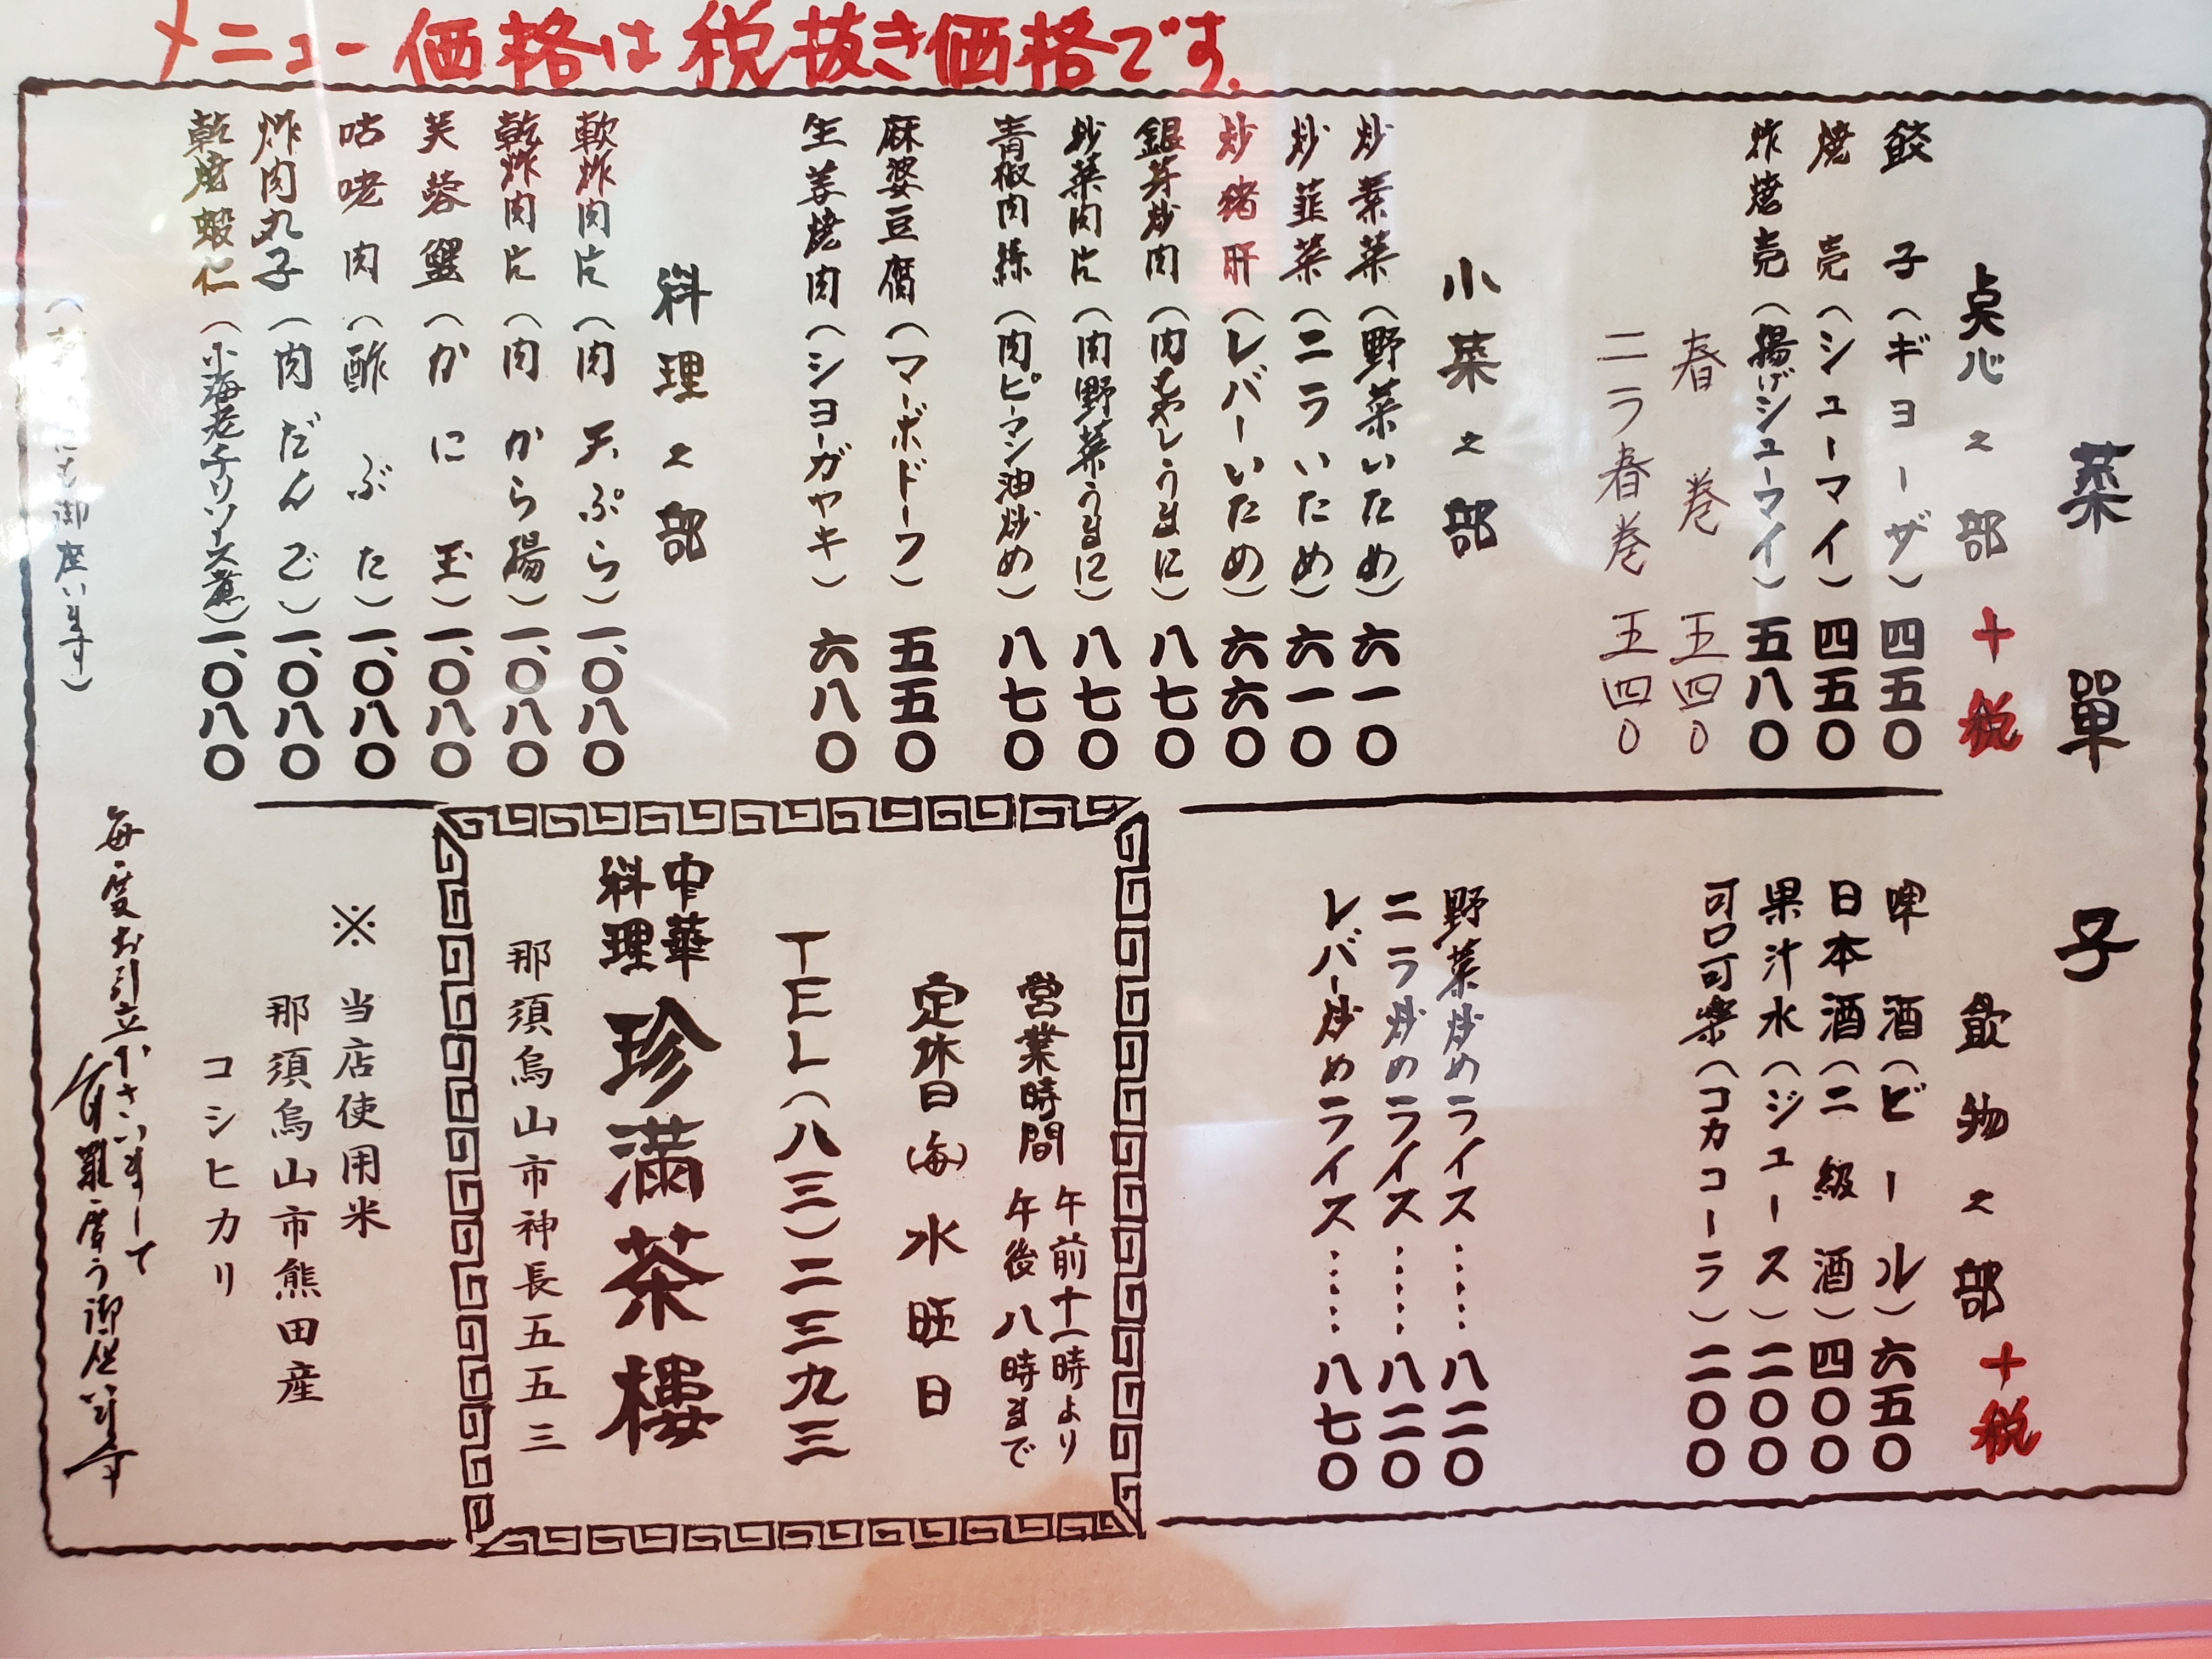 メニュー価格は税抜き価格です.
菜單子
点心之部 +税
餃子(ギョーザ)四五〇
焼売(シューマイ)四五〇
炸焼売(揚げシューマイ)五八〇
春巻 五四〇
ニラ春巻 五四〇
小菜之部
炒素菜(野菜いため)六一〇
炒韮菜(ニラいため)六一〇
炒猪肝(レバーいため)六六〇
銀芽炒肉(肉もやしうまに)八七〇
炒菜肉片(肉野菜うまに)八七〇
青椒肉絲(肉ピーマン油炒め)八七〇
麻婆豆腐(マーボドーフ)五五〇
生姜焼肉(ショーガヤキ)六八〇
料理之部
軟炸肉片(肉天ぷら)一、〇八〇
乾炸肉片(肉から揚)一、〇八〇
芙蓉蟹(かに玉)一、〇八〇
咕咾肉(酢ぶた)一、〇八〇
炸肉丸子(肉だんご)一、〇八〇
乾焼蝦仁(小海老チリソース煮)一、〇八〇
にも御座います)
飲物之部 +税
啤酒(ビール)六五〇
日本酒(二級酒)四〇〇
果汁水(ジュース)二〇〇
可口可楽(コカコーラ)二〇〇
野菜炒めライス……八二〇
ニラ炒めライス……八二〇
レバー炒めライス……八七〇
営業時間 午前十一時より
午後八時まで
定休日(毎)水旺日
TEL(八三)二三九三
中華料理 珍満茶樓
那須烏山市神長五五三
※当店使用米
那須烏山市熊田産
コシヒカリ
毎度お引立下さいまして
有難度う御座います